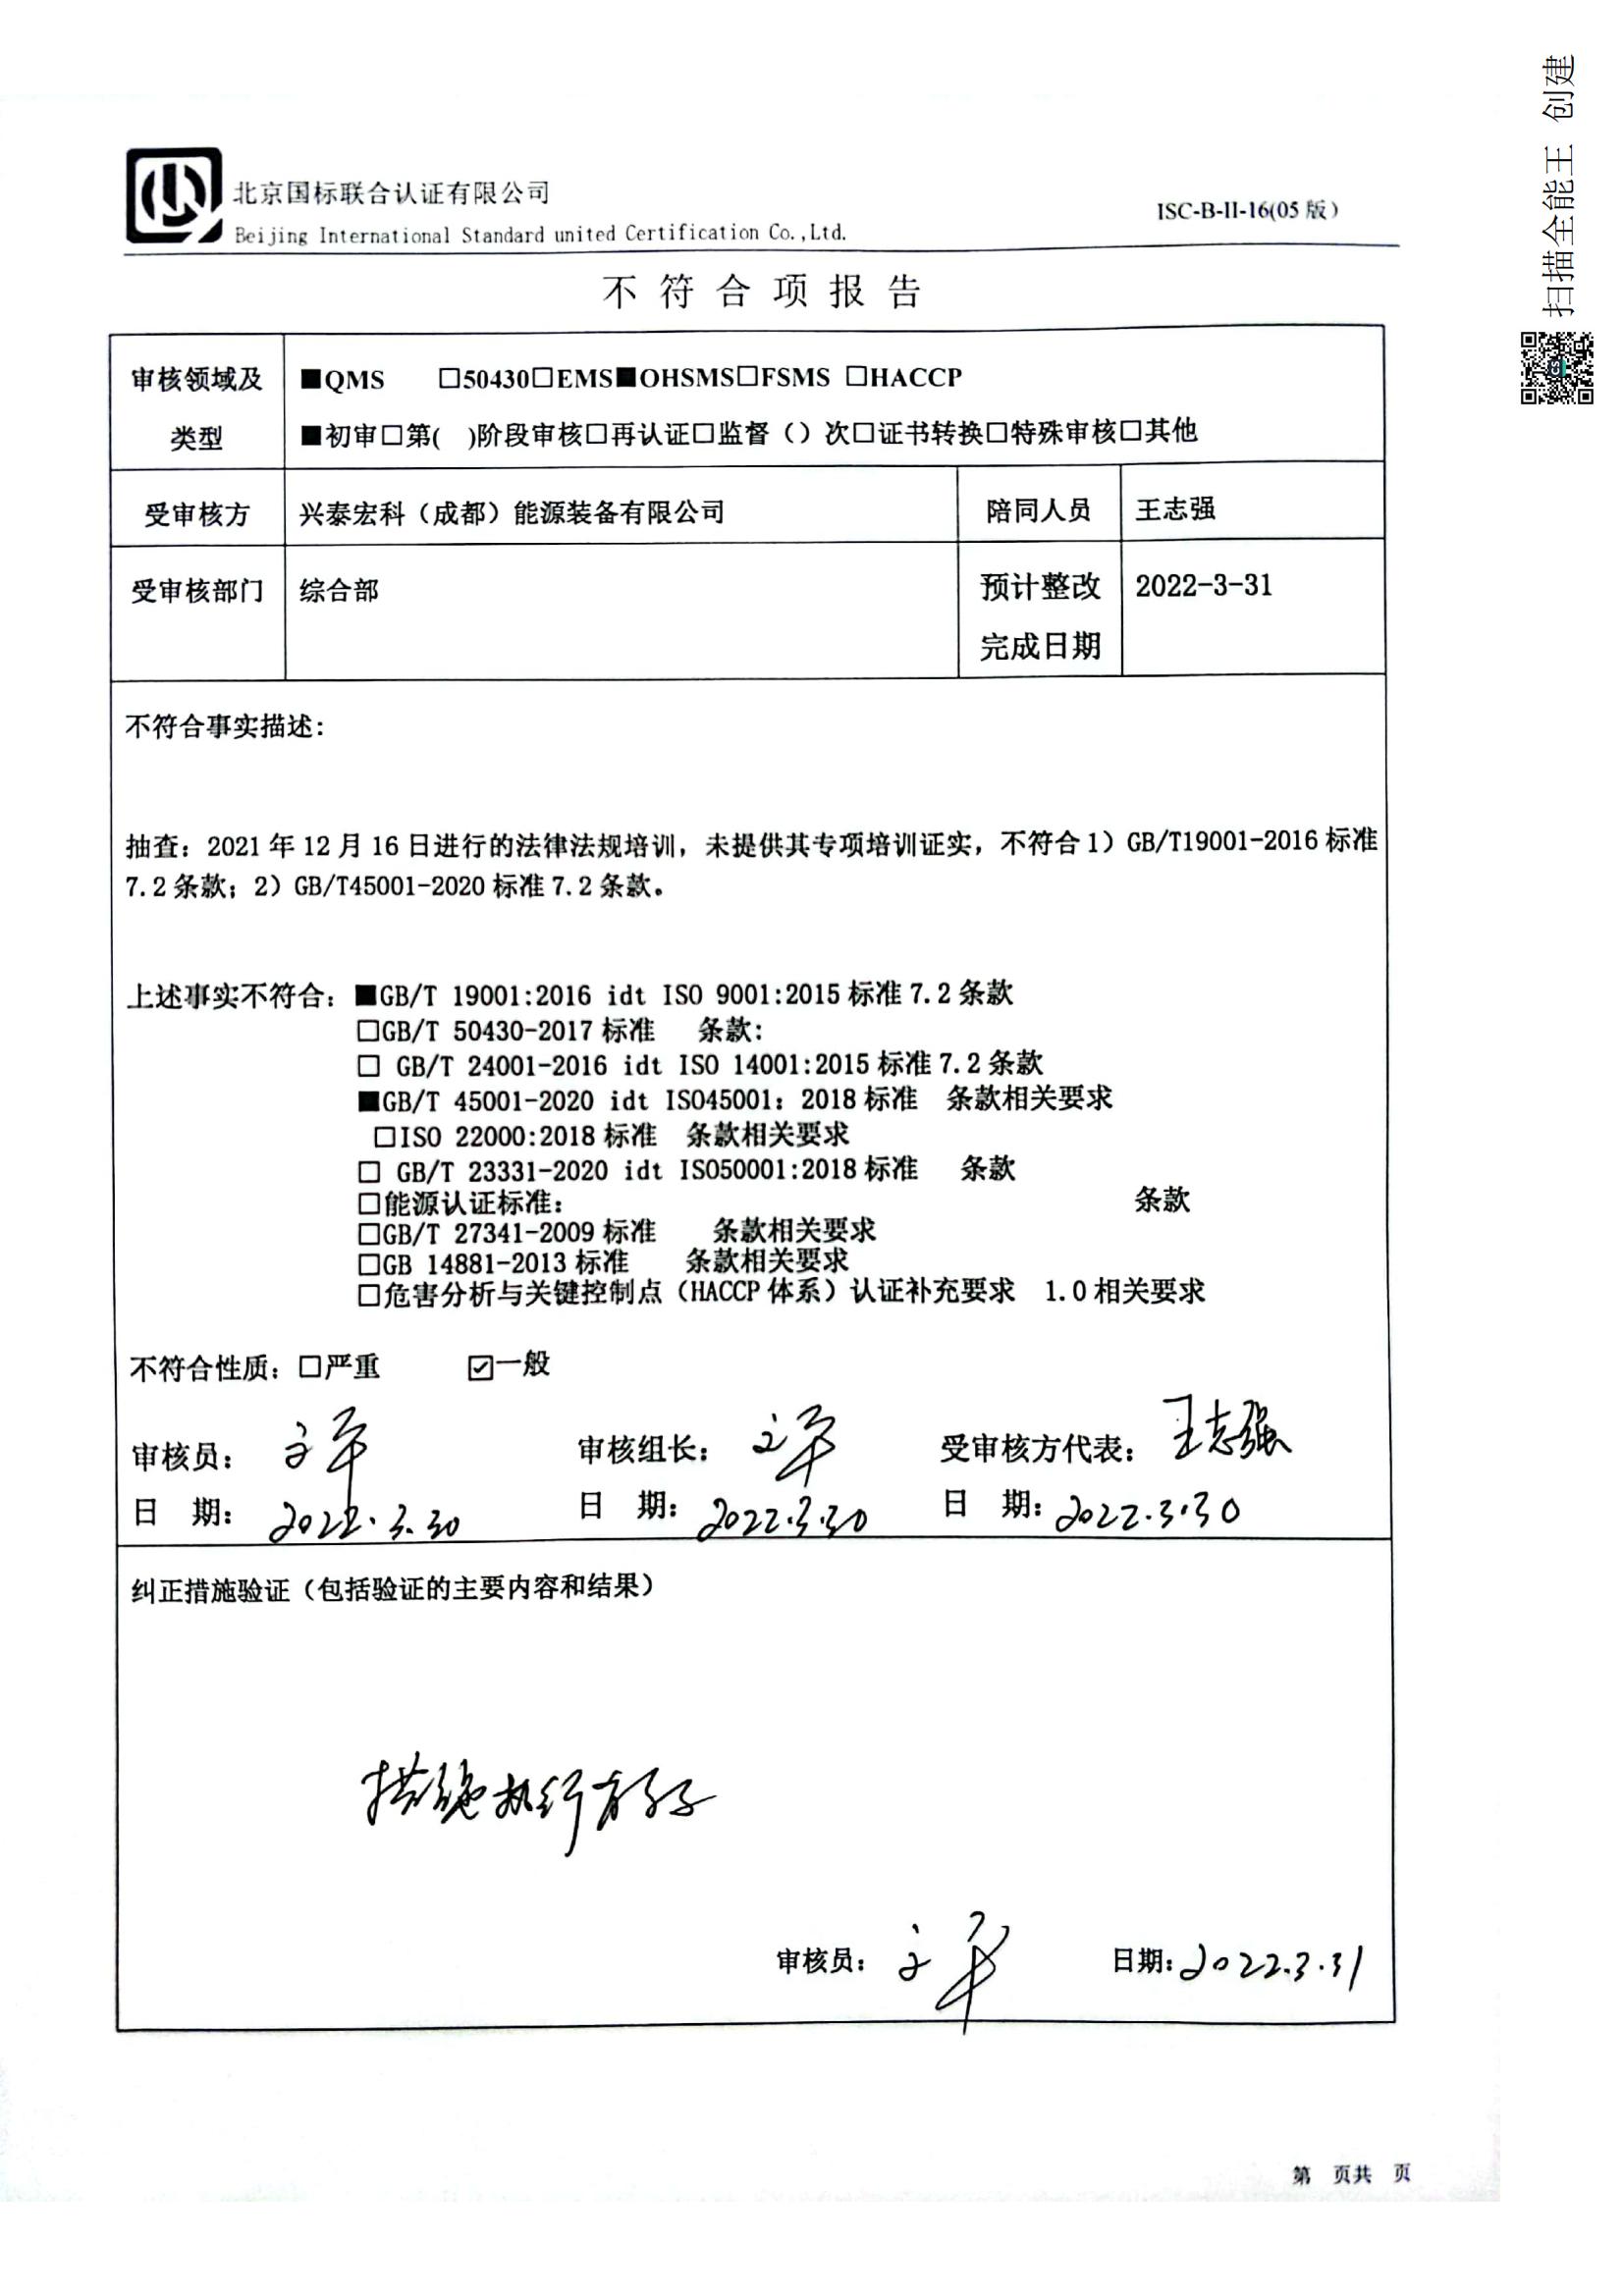 北京国标联合认证有限公司
Beijing International Standard united Certification Co.,Ltd.
ISC-B-II-16(05 版)
不符合项报告
审核领域及类型
■QMS □50430□EMS■OHSMS□FSMS □HACCP
■初审□第( )阶段审核□再认证□监督（）次□证书转换□特殊审核□其他
受审核方 兴泰宏科（成都）能源装备有限公司 陪同人员 王志强
受审核部门 综合部 预计整改完成日期 2022-3-31
不符合事实描述:
抽查：2021 年 12 月 16 日进行的法律法规培训，未提供其专项培训证实，不符合 1）GB/T19001-2016 标准
7.2 条款；2）GB/T45001-2020 标准 7.2 条款。
上述事实不符合：■GB/T 19001:2016 idt ISO 9001:2015 标准 7.2 条款
□GB/T 50430-2017 标准 条款:
□ GB/T 24001-2016 idt ISO 14001:2015 标准 7.2 条款
■GB/T 45001-2020 idt ISO45001：2018 标准 条款相关要求
□ISO 22000:2018 标准 条款相关要求
□ GB/T 23331-2020 idt ISO50001:2018 标准 条款
□能源认证标准: 条款
□GB/T 27341-2009 标准 条款相关要求
□GB 14881-2013 标准 条款相关要求
□危害分析与关键控制点（HACCP 体系）认证补充要求 1.0 相关要求
不符合性质：□严重 ☑一般
审核员： 文平 审核组长： 文平 受审核方代表： 王志强
日 期： 2022.3.30 日 期： 2022.3.30 日 期： 2022.3.30
纠正措施验证（包括验证的主要内容和结果）
措施执行有效
审核员： 文平 日期： 2022.3.31
第 页共 页
扫描全能王 创建